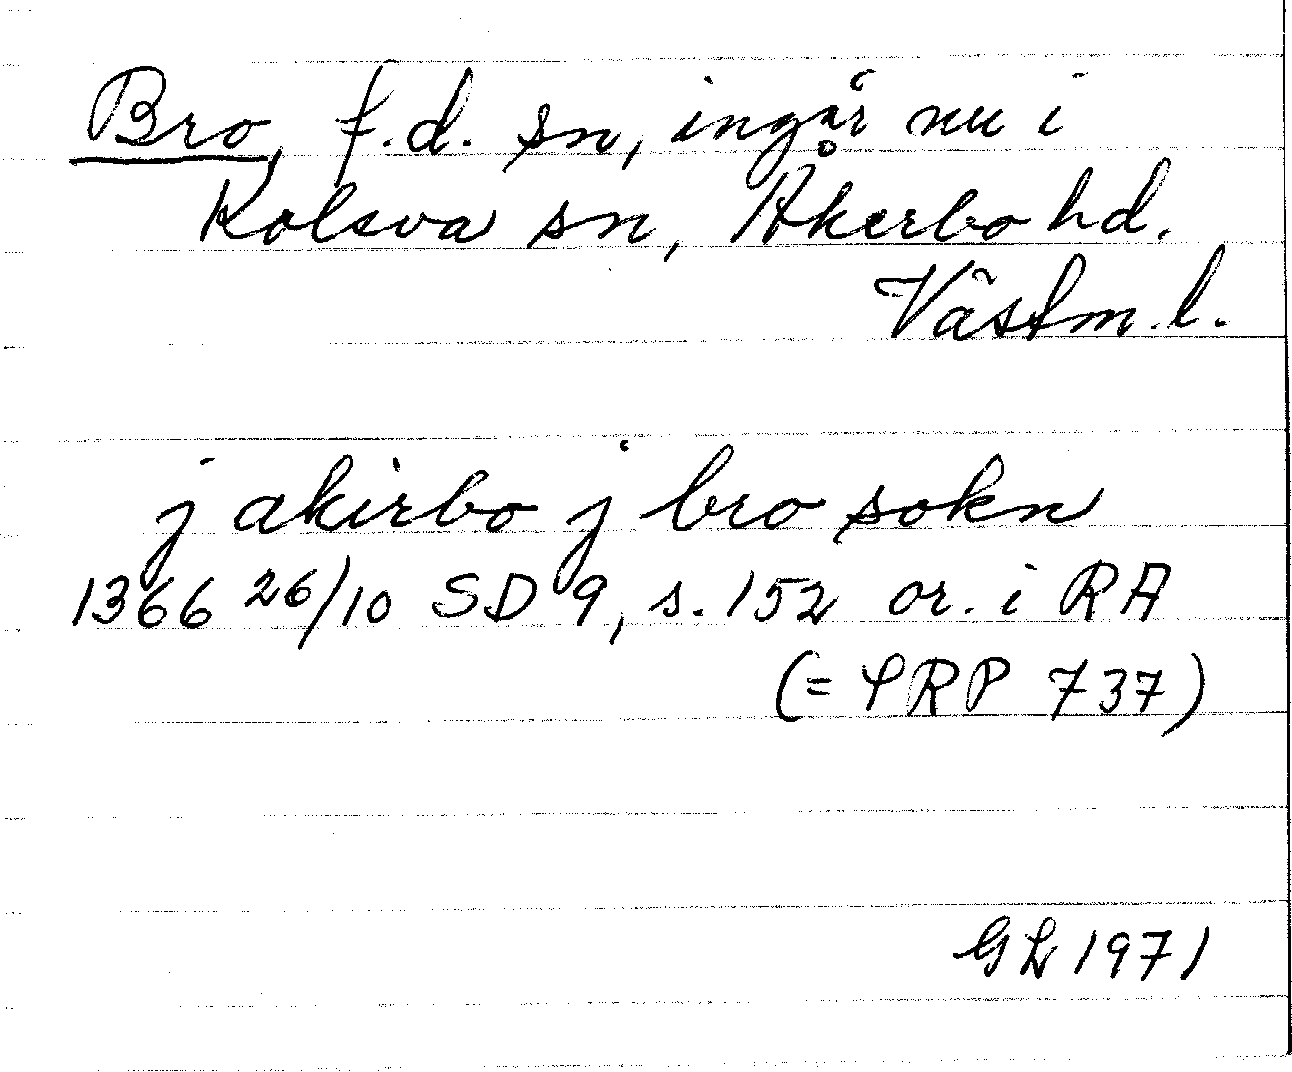 Bro, f.d. sn, ingår nu i
Kolsva sn, Åkerbo hd.
Västm. l.
j akirbo j bro sokn
1366 26/10 SD 9, s. 152 or. i RA
(= SRP 737)
GL 1971